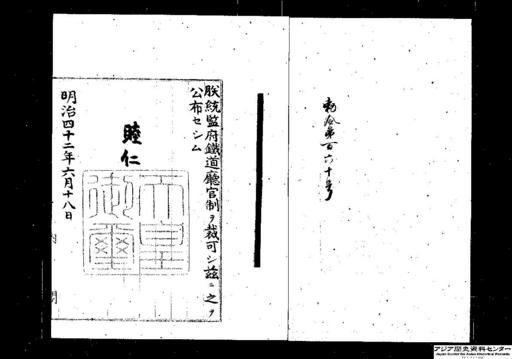 勅令第百六十号
朕統監府鐵道廳官制ヲ裁可シ茲ニ之ヲ
公布セシム
睦仁
天皇御璽
明治四十二年六月十八日
内閣
アジア歴史資料センター
Japan Center for Asian Historical Records